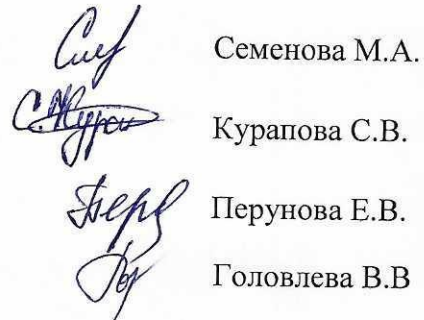 Семенова М.А.
Курапова С.В.
Перунова Е.В.
Головлева В.В